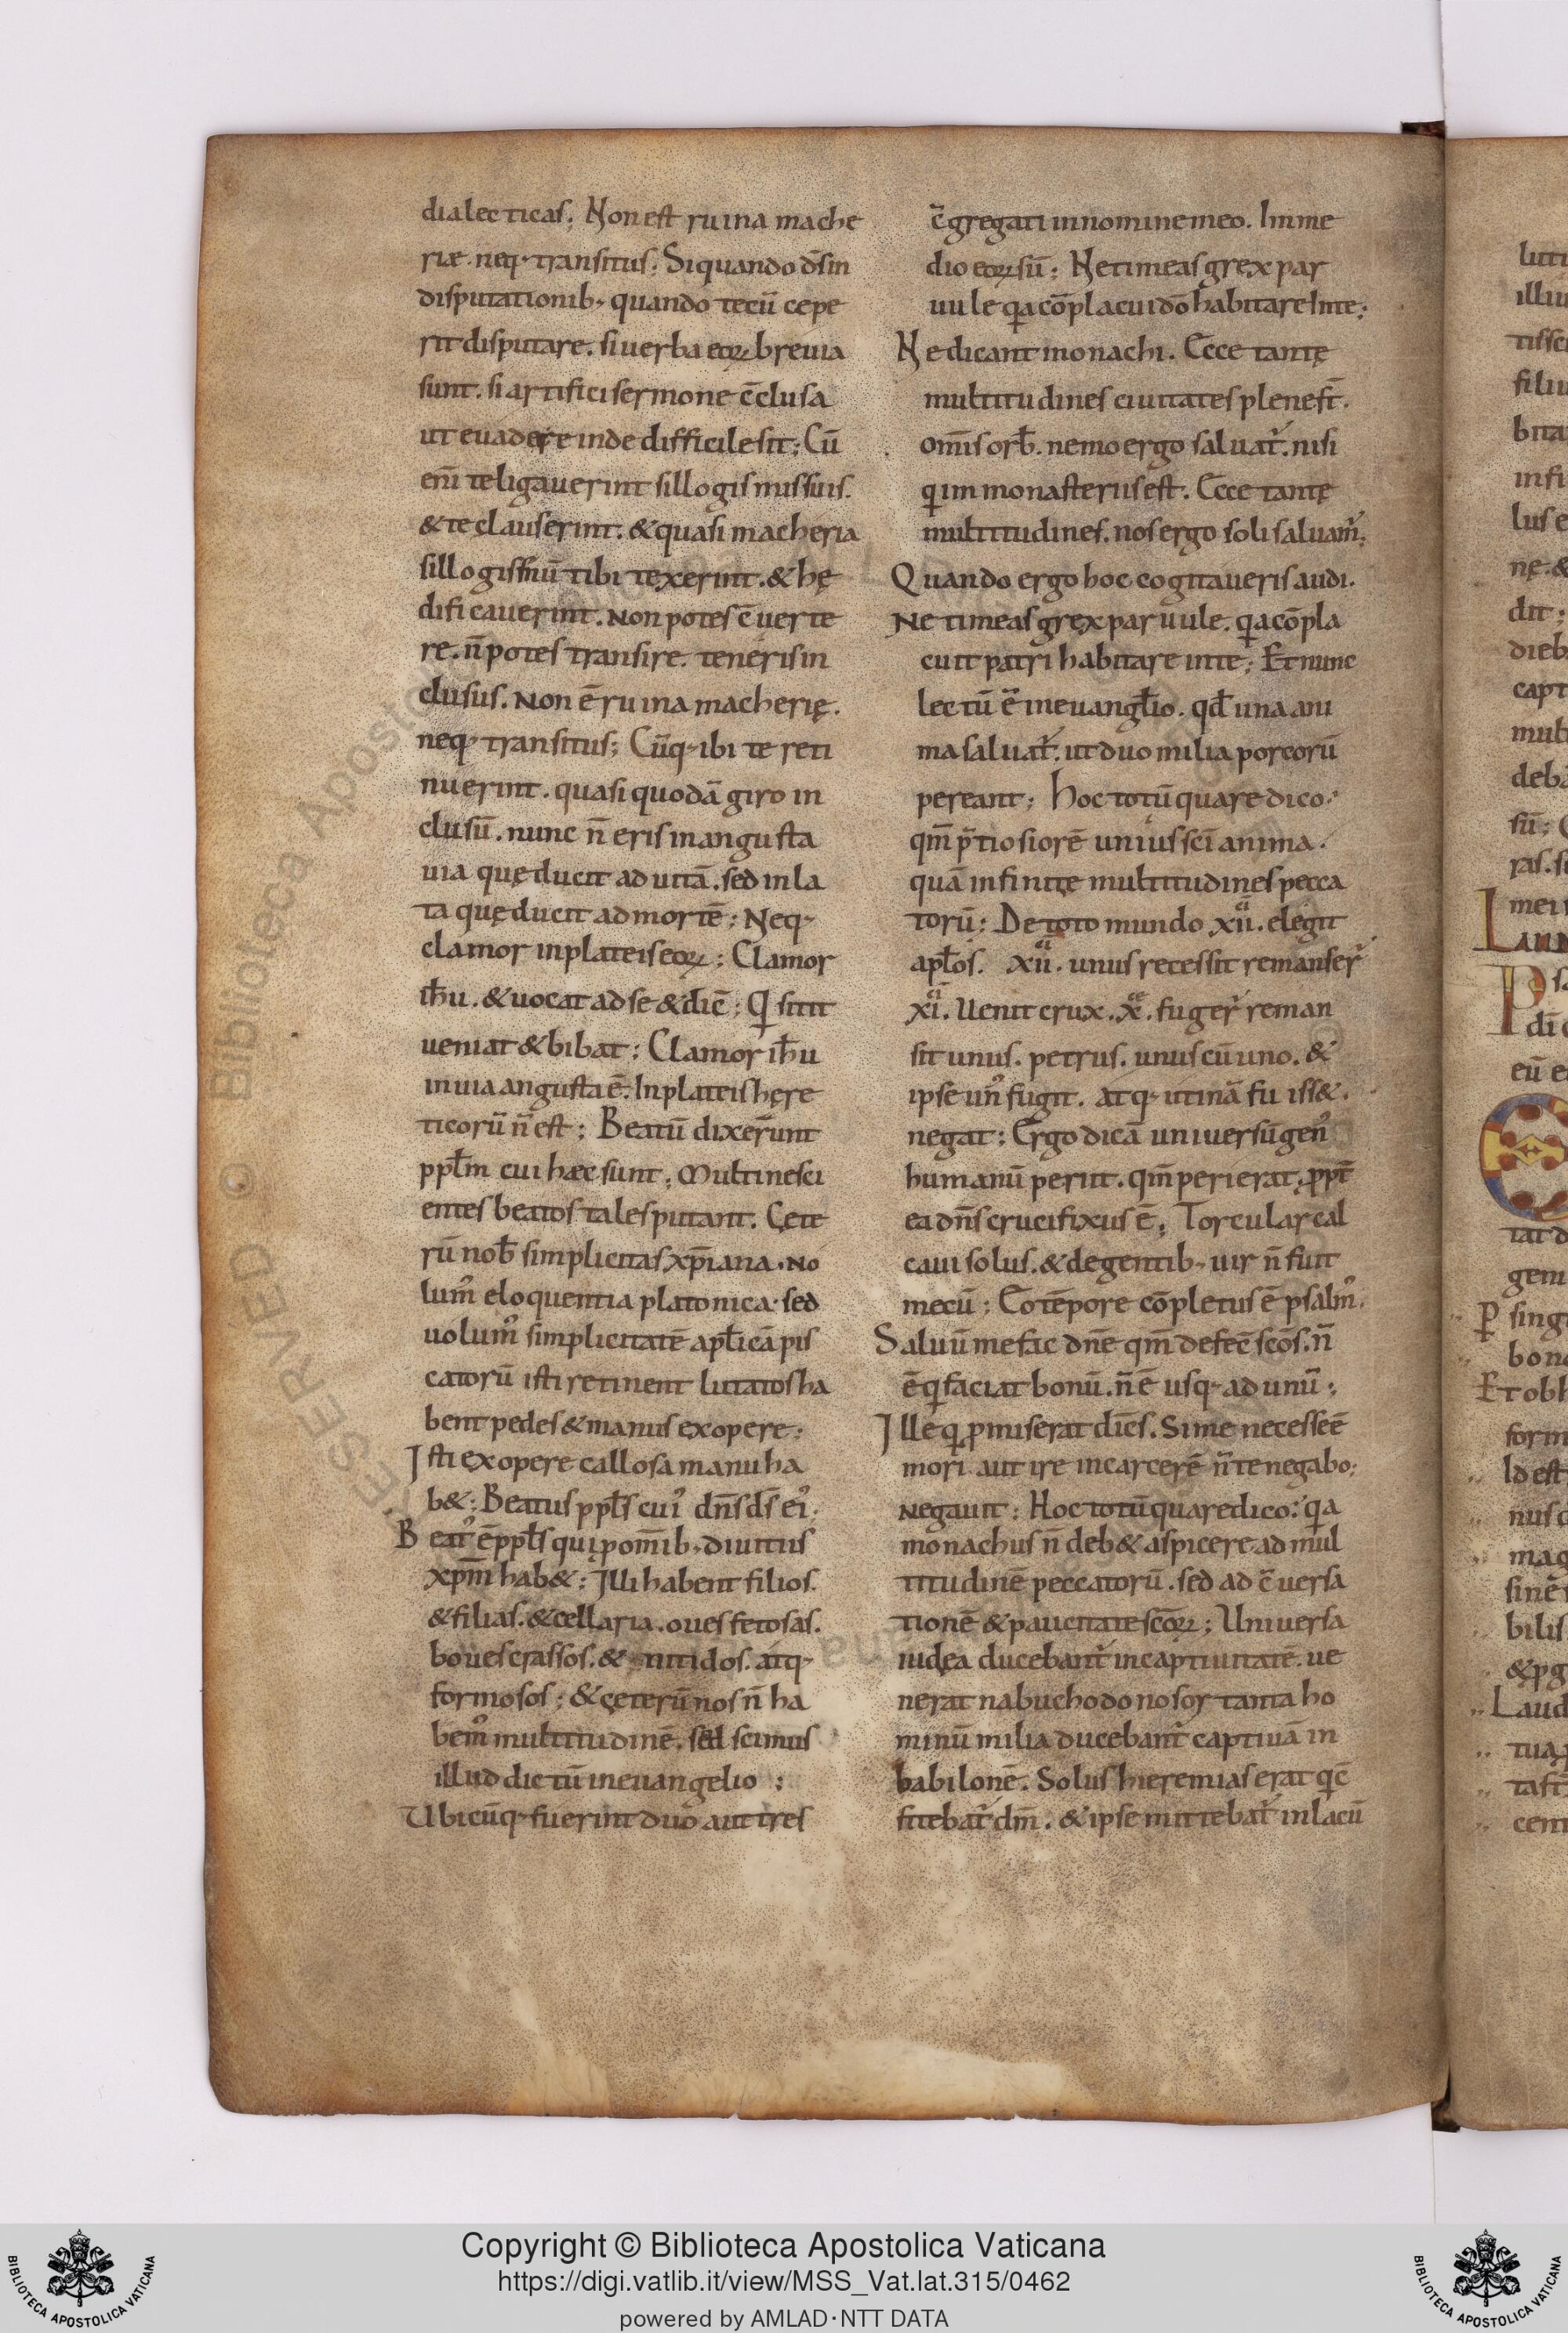 dialecticas; Non est ruina mache
riæ. neq; transitus; Si quando d̄s in
disputationib; quando tecū cepe
rit disputare. si uerba eoꝝ breuia
sunt. si artifici sermone c̄clusa
ut euadere inde difficile sit; Cū
eni te ligauerint sillogismis suis.
& te clauserint. & quasi macheria
sillogismū tibi texerint. & hę
dificauerint. Non potes c̄uerte
re. n̄ potes transire. teneris in
clusus. Non ē ruina macherię.
neq; transitus; Cūq; ibi te reti
nuerint. quasi quodā giro in
clusū. nunc n̄ eris in angusta
uia quę ducit ad uitā. sed in la
ta quę ducit ad mortē; Neq;
clamor in plateis eoꝝ; Clamor
ih̄u. & uocat ad se & dic̄; Qi sitit
ueniat & bibat; Clamor ih̄u
in uia angusta ē. In plateis here
ticorū n̄ est; Beatū dixerunt
ppl̄m cui hæc sunt; Multi nesci
entes beatos tales putant. Cęte
rū nob̄ simplicitas xp̄iana. No
lum᾽ eloquentia platonica. sed
uolum᾽ simplicitatē apl̄icā pis
catorū isti retinent lutatos ha
bent pedes & manus ex opere;
Isti ex opere callosa manu ha
b&; Beatus ppl̄s cui᾽ dn̄s d̄s ei᾽;
Beat᾽ ē ppl̄s qui ꝓ om̄ib; diuitiis
xp̄m hab&; Illi habent filios.
& filias. & cellaria. oues fetosas.
boues crassos. & nitidos. atq;
formosos; & cęterū nos n̄ ha
bem᾽ multitudinē. sed scimus
illud dictū in euangelio;
Ubicūq; fuerint duo aut tres
c̄gregati in nomine meo. In me
dio eoꝝ sū; Ne timeas grex par
uule qa cōplacui dō habitare in te;
Ne dicant monachi. Ecce tantę
multitudines ciuitates plene st̄.
om̄is orb̄. nemo ergo saluat̄. nisi
qi in monasteriis est. Ecce tantę
multitudines. nos ergo soli saluam̄;
Quando ergo hoc cogitaueris audi.
Ne timeas grex paruule. qa cōpla
cuit patri habitare in te; Et nunc
lectū ē in euangl̄io. qd̄ una ani
ma saluat̄. ut duo milia porcorū
pereant; Hoc totū quare dico.
qm̄ p̄tiosiorē unius sc̄i anima.
quā infinitę multitudines pecca
torū; De toto mundo xii. elegit
apl̄os. Xii. unus recessit remanser̄
xi. Uenit crux. x. fuger̄ reman
sit unus. petrus. unus cū uno. &
ipse un᾽ fugit. atq; utinā fuiss&.
negat; Ergo dicā uniuersū gen᾽
humanū periit. qm̄ perierat. ꝓpt̄
ea dn̄s crucifixus ē; Torcular cal
caui solus. & de gentib; uir n̄ fuit
mecū; Eo tēpore cōpletus ē psalm᾽.
Saluū me fac dn̄e qm̄ defec̄ sc̄os. n̄
ē qi faciat bonū. n̄ ē usq; ad unū;
Ille qi ꝓmiserat dic̄s. Si me necesse ē
mori. aut ire in carcerē n̄ te negabo;
Negauit; Hoc totū quare dico. qa
monachus n̄ deb& aspicere ad mul
titudinē peccatorū. sed ad c̄uersa
tionē & paucitatē sc̄oꝝ; Uniuersa
iudęa ducebant̄ in captiuitatē. ue
nerat nabuchodonosor tanta ho
minū milia ducebant̄ captiuā in
babilonē. Solus hieremias erat qi c̄
fitebat̄ dm̄. & ipse mittebat̄ in lacū
Copyright © Biblioteca Apostolica Vaticana
https://digi.vatlib.it/view/MSS_Vat.lat.315/0462
powered by AMLAD·NTT DATA
BIBLIOTECA APOSTOLICA VATICANA
BIBLIOTECA APOSTOLICA VATICANA